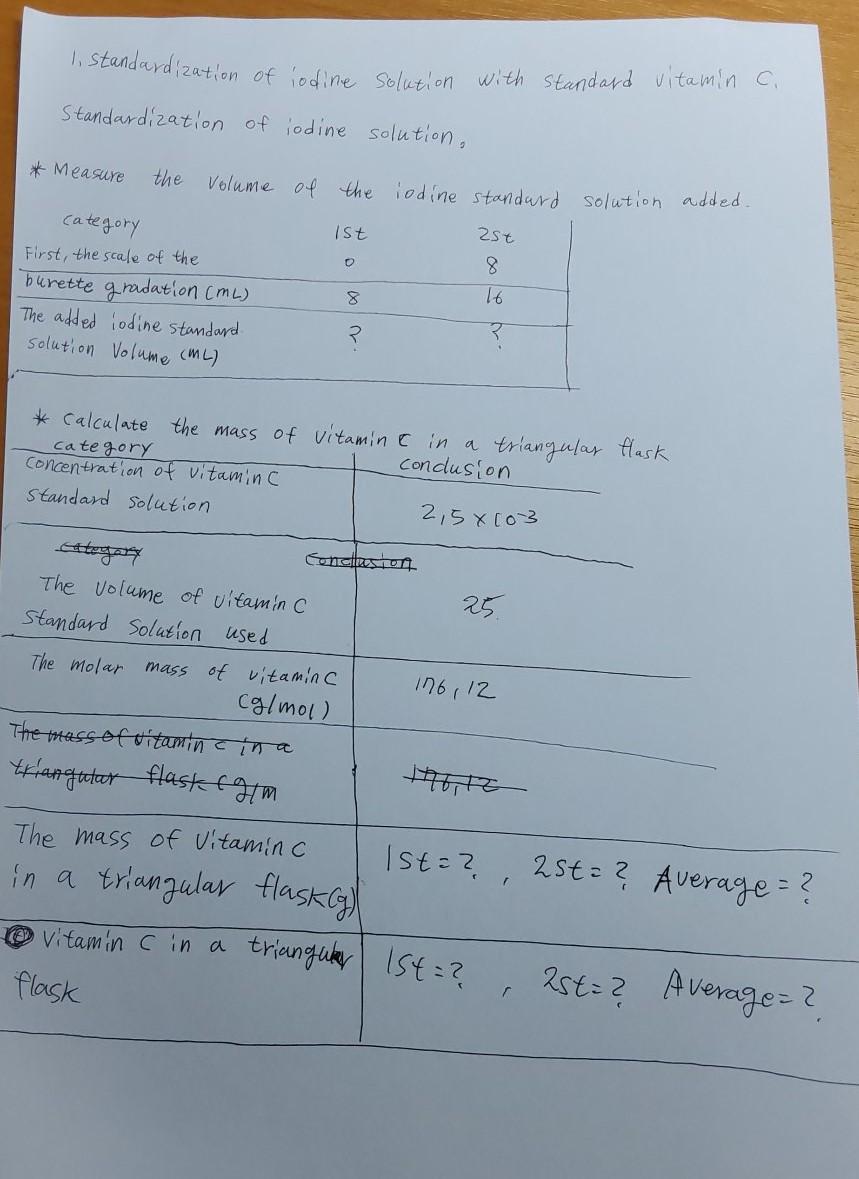 1. Standardization of iodine Solution with Standard vitamin C.
Standardization of iodine solution.
* Measure the Volume of the iodine standard solution added.
category 1St 2St
First, the scale of the 0 8
burette gradation (mL) 8 16
The added iodine standard ? ?
solution Volume (mL)
* Calculate the mass of vitamin C in a triangular flask
category conclusion
Concentration of vitamin C
Standard solution 2,5 x 10-3
category conclusion
The Volume of vitamin C 25
Standard Solution used
The molar mass of vitamin C 176,12
(g/mol)
The mass of vitamin c in a
triangular flask (g/m 176,12
The mass of Vitamin C 1St = ?, 2St = ? Average = ?
in a triangular flask (g)
Vitamin C in a triangular 1St = ?, 2St = ? Average = ?
flask